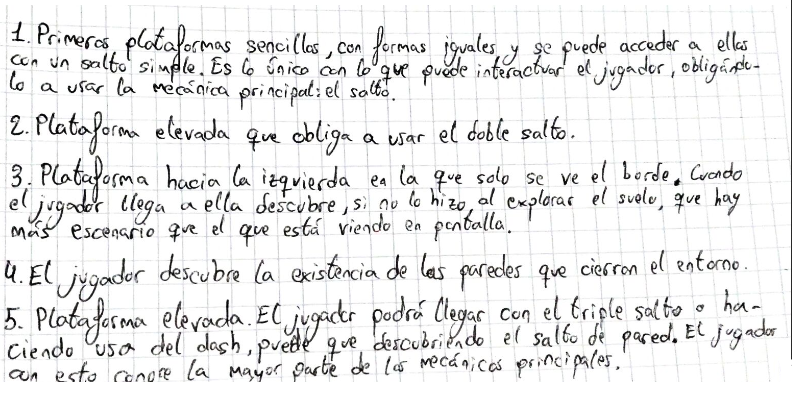 1. Primeras plataformas sencillas, con formas iguales y se puede acceder a ellas
con un salto simple. Es lo único con lo que puede interactuar el jugador, obligándo-
lo a usar la mecánica principal: el salto.
2. Plataforma elevada que obliga a usar el doble salto.
3. Plataforma hacia la izquierda en la que solo se ve el borde. Cuando
el jugador llega a ella descubre, si no lo hizo al explorar el suelo, que hay
más escenario que el que está viendo en pantalla.
4. El jugador descubre la existencia de las paredes que cierran el entorno.
5. Plataforma elevada. El jugador podrá llegar con el triple salto o ha-
ciendo uso del dash, puede que descubriendo el salto de pared. El jugador
con esto conoce la mayor parte de las mecánicas principales.